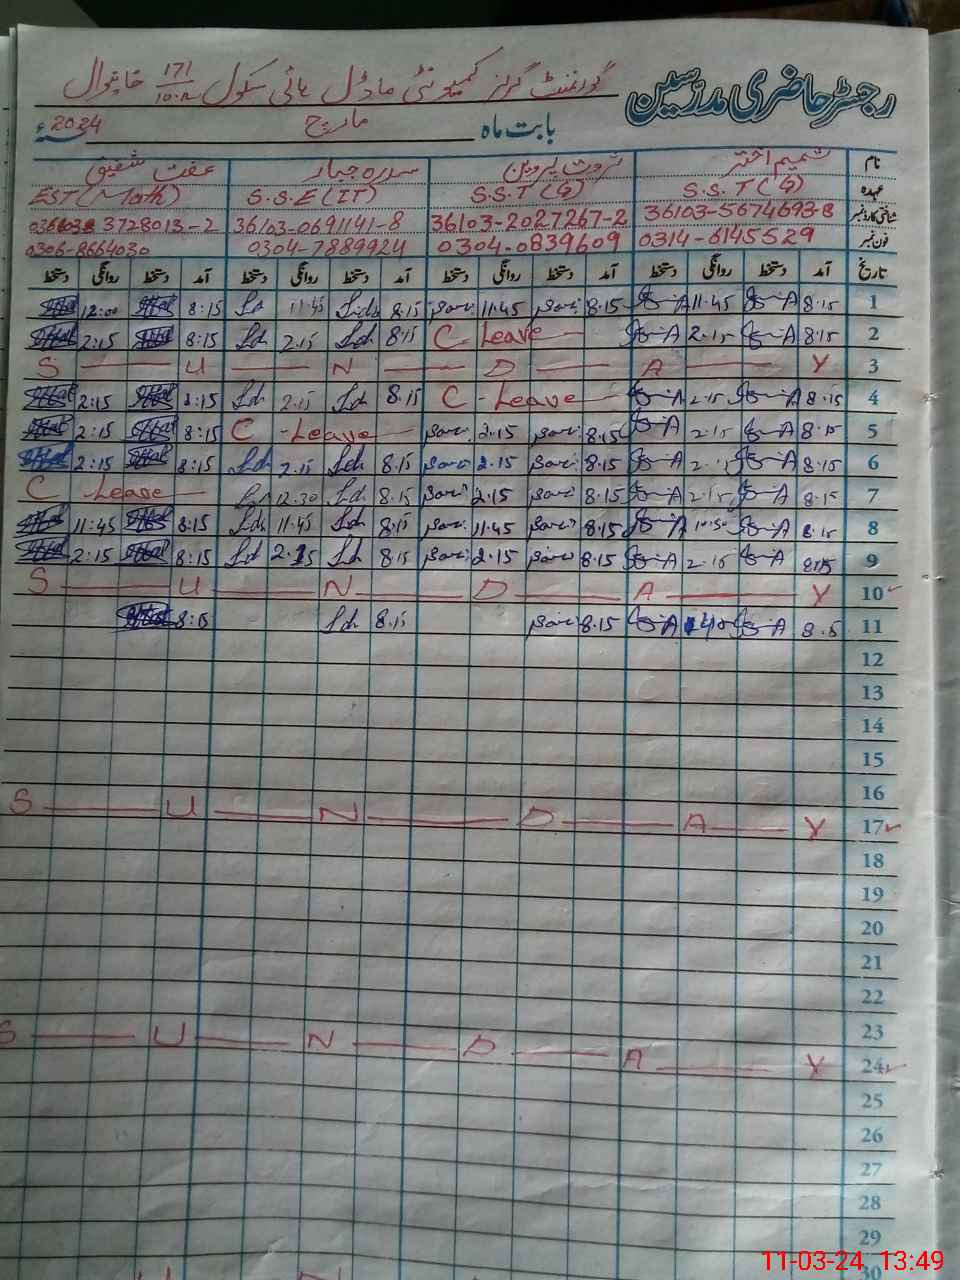 رجسٹر حاضری مدرسین گورنمنٹ گرلز کمیونٹی ماڈل ہائی سکول 171/10.R خانیوال
بابت ماہ مارچ 2024ء
نام شمیم اختر ثروت پروین سدرہ جبار عفت شفیق
عہدہ S.S.T(G) S.S.T(G) S.S.E(IT) EST(Math)
شناختی کارڈ نمبر 36103-5674693-8 36103-2027267-2 36103-0691141-8 3728013-2
فون نمبر 0314-6145529 0304-0839609 0304-7889924 0306-8664030
تاریخ آمد دستخط روانگی دستخط آمد دستخط روانگی دستخط آمد دستخط روانگی دستخط آمد دستخط روانگی دستخط
1 8.15 11.45 8.15 11.45 8.15 11.45 8:15 12:00
2 8.15 2.15 C Leave 8.15 2.15 8:15 2:15
3 S U N D A Y
4 8.15 2.15 C - Leave 8.15 2.15 8:15 2:15
5 8.15 2.15 8.15 2.15 C - Leave 8:15 2:15
6 8.15 8.15 2.15 8.15 2.15 8:15 2:15
7 8.15 2.15 8.15 2.15 8.15 12.30 C Leave
8 8.15 10.30 8.15 11.45 8.15 11.45 8:15 11:45
9 8.15 2.15 8.15 2.15 8.15 2.15 8:15 2:15
10 S U N D A Y
11 8.15 8.15 8:15
12
13
14
15
16
17 S U N D A Y
18
19
20
21
22
23
24 S U N D A Y
25
26
27
28
29
30
11-03-24, 13:49